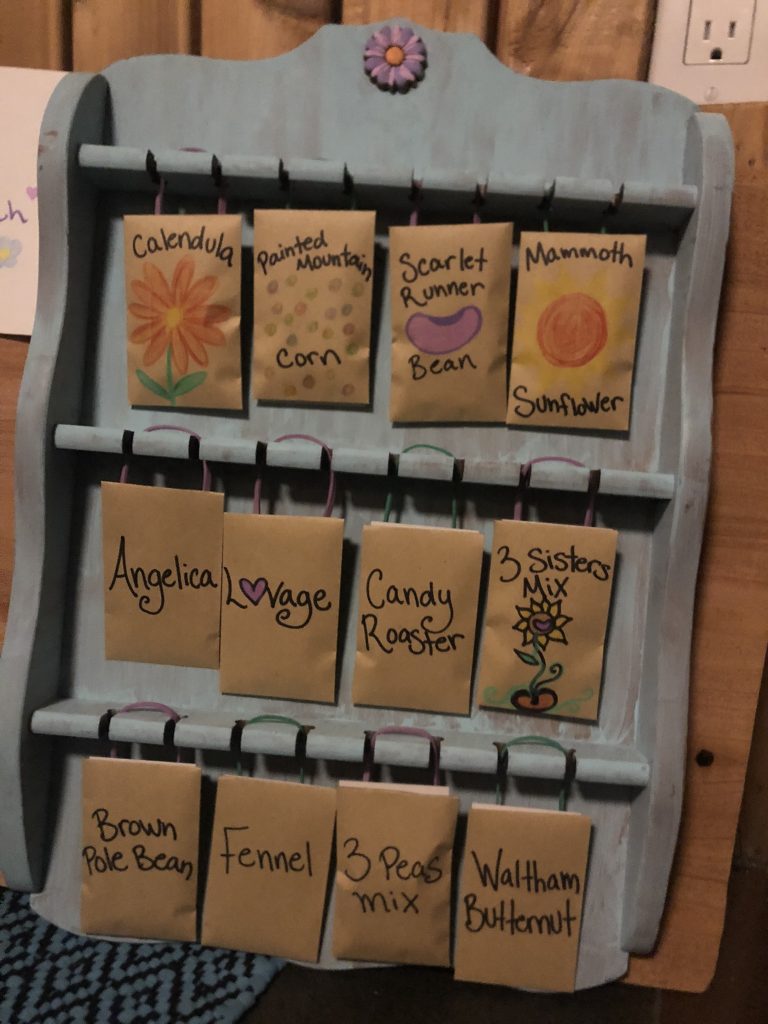 Calendula
Painted
Mountain
Corn
Scarlet
Runner
Bean
Mammoth
Sunflower
Angelica
Lovage
Candy
Roaster
3 Sisters
Mix
Brown
Pole Bean
Fennel
3 Peas
mix
Waltham
Butternut